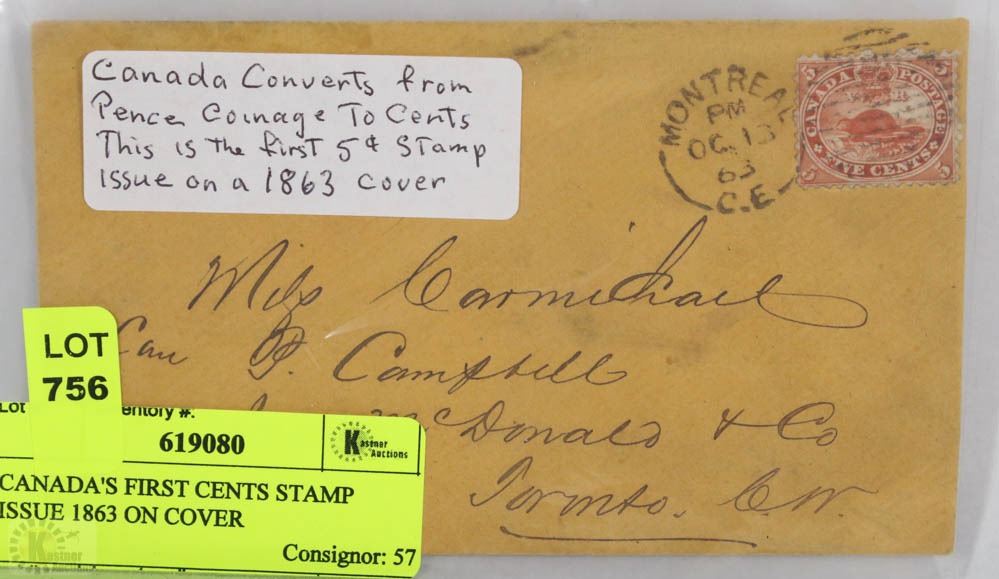 Canada Converts from
Pence Coinage To Cents
This is the first 5¢ Stamp
issue on a 1863 cover
MONTREAL
PM
OC 13
63
C.E
5 5
CANADA POSTAGE
FIVE CENTS
5 5
Miss Carmichael
Care P. Campbell
McDonald & Co
Toronto. C.W.
LOT
756
Lot entory #:
619080
Kastner
Auctions
CANADA'S FIRST CENTS STAMP
ISSUE 1863 ON COVER
Consignor: 57
Kastner
Auctions